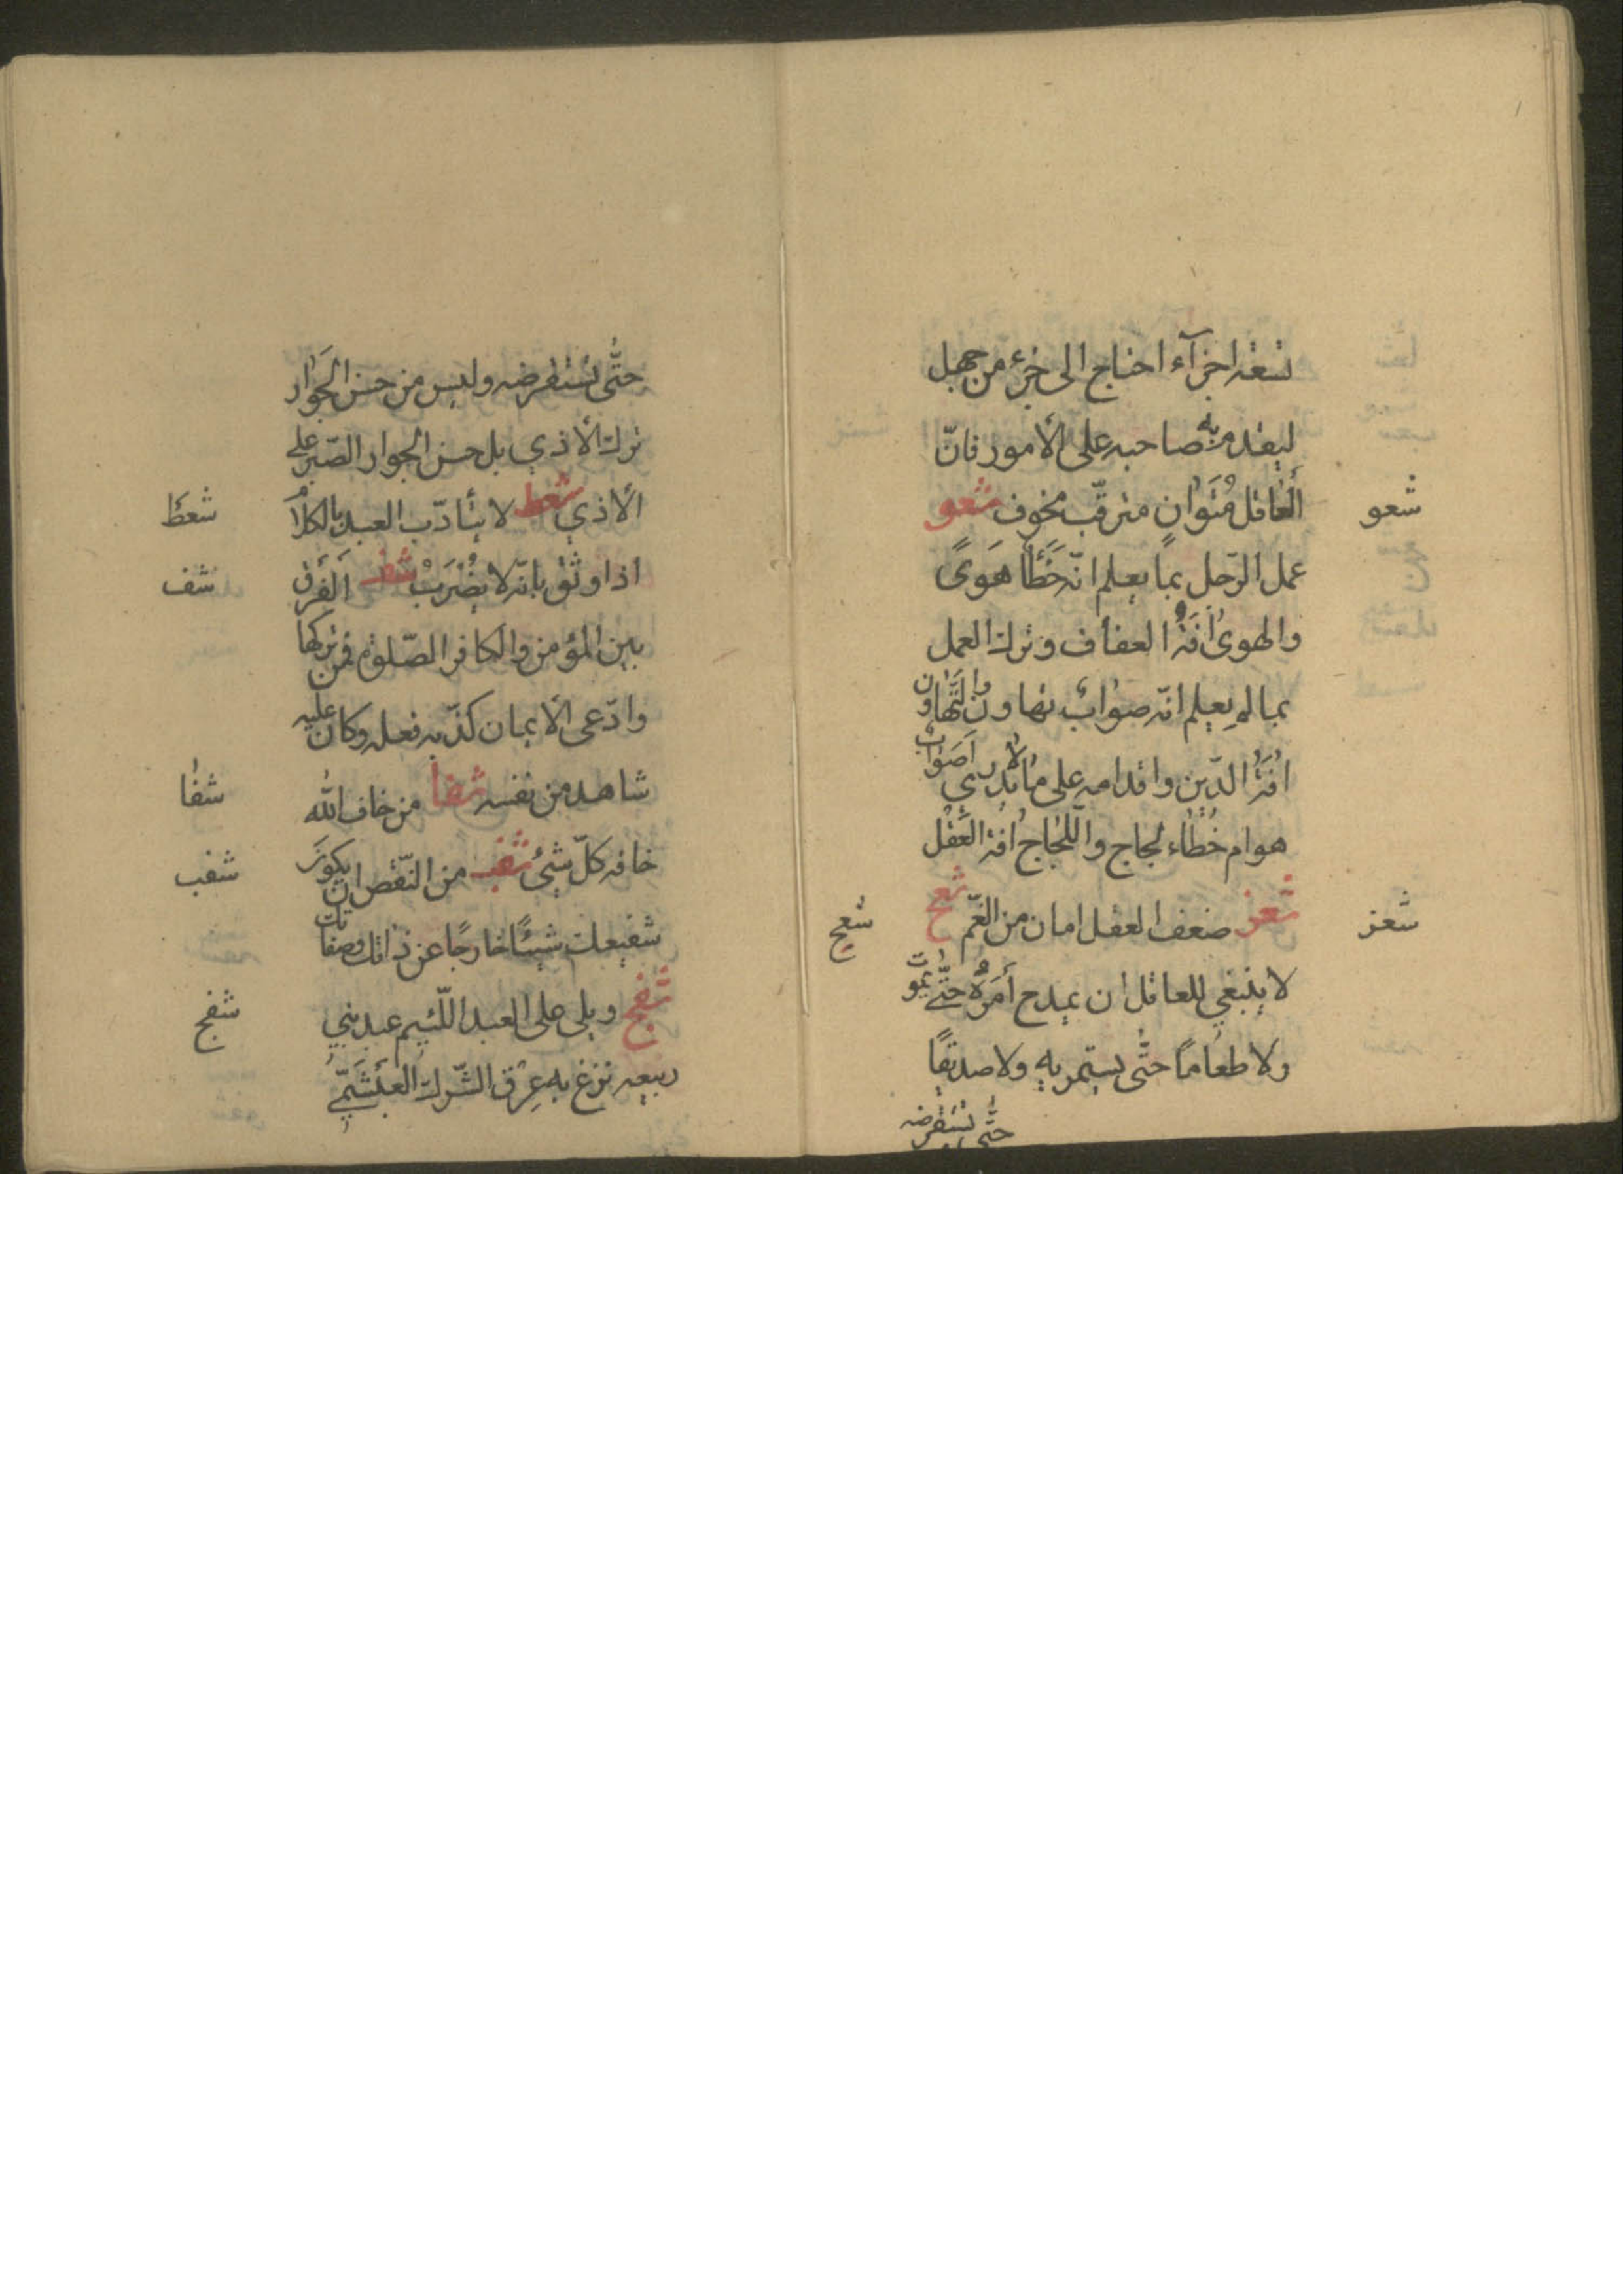 تسعة اجزآء احتاج الى جزء من جهل
ليقدم به صاحبه على الأمور فانّ
شعو
ألعاقل مُتَوانٍ مترقّب مخوف شعو
عمل الرّجل بما يعلم انّه خَطَأٌ هَوىً
والهوىٰ اٰفَةُ العفاف وترك العمل
بما لم يعلم انّه صوابٌ تهاون والتَّهاون
اٰفَةُ الدّين واقدامه على ما لا يدري أَصَوابٌ
هو ام خَطاء لجاج واللّجاج اٰفة العَقْل
شعز
شعز ضعف العقل امان من الغمّ شعح
شعح
لا ينبغي للعاقل ان يمدح أمْرَةً حتّى تموت
ولا طعامًا حتّى يستمريه ولا صديقًا
حتّى يستقرضه
حتّى يستقرضه وليس من حسن الجَوار
ترك الأذي بل حسن الجوار الصّبر على
شعط
الأذي شعط لا يتأدّب العبد بالكلام
شف
اذا وثق بانّه لا يُضْرَبُ شف ألفرق
بين المؤمن والكافر الصّلوة فمن تركها
وادّعى الأيمان كذّبه فعله وكان عليه
شفا
شاهد من نفسه شفا من خاف اللّٰه
شفب
خافه كلّ شيءٍ شفب من النّقص ان يكونَ
شفيعك شيئًا خارجًا عن ذاتك وصفاتك
شفج
شفج ويلي على العبد اللّئيم عبد بني
ربيعه نزغ به عِرْق الشّرك العَبْشَمِّيِ